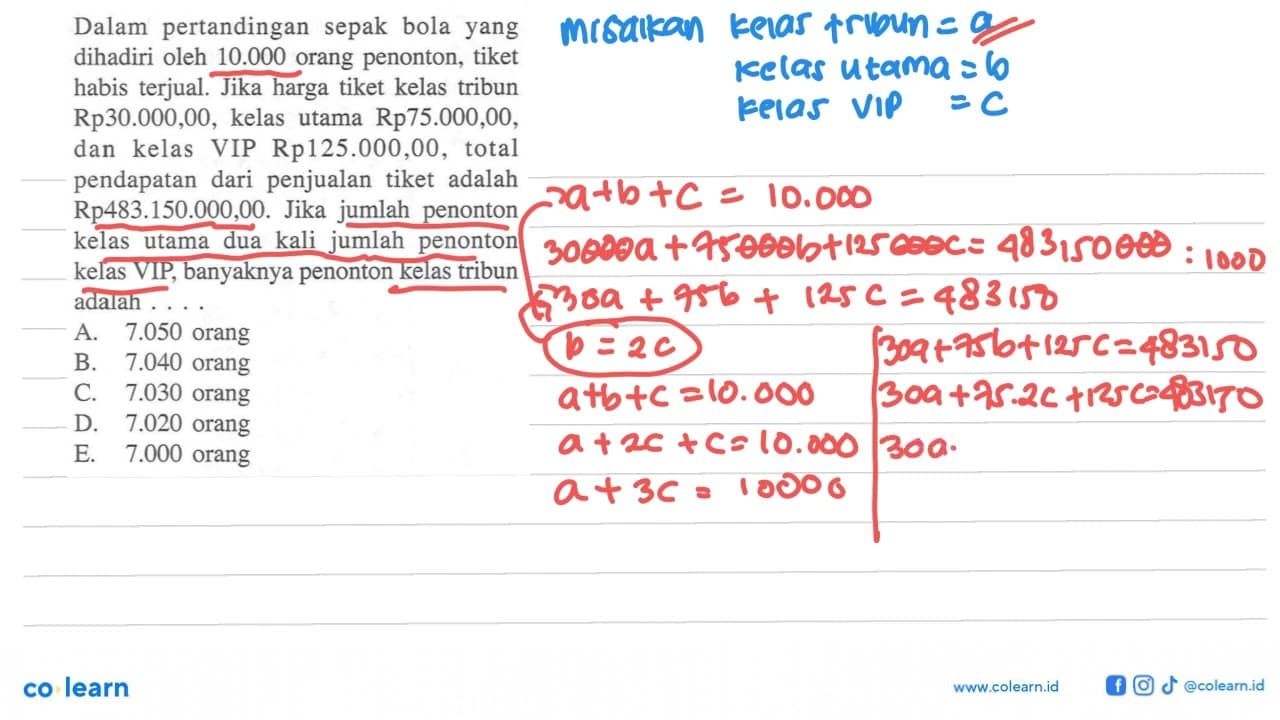 Dalam pertandingan sepak bola yang
dihadiri oleh 10.000 orang penonton, tiket
habis terjual. Jika harga tiket kelas tribun
Rp30.000,00, kelas utama Rp75.000,00,
dan kelas VIP Rp125.000,00, total
pendapatan dari penjualan tiket adalah
Rp483.150.000,00. Jika jumlah penonton
kelas utama dua kali jumlah penonton
kelas VIP, banyaknya penonton kelas tribun
adalah . . . .
A. 7.050 orang
B. 7.040 orang
C. 7.030 orang
D. 7.020 orang
E. 7.000 orang
misalkan kelas tribun = a
kelas utama = b
kelas VIP = c
a + b + c = 10.000
30000a + 75000b + 125000c = 483150000 : 1000
30a + 75b + 125c = 483150
b = 2c
a + b + c = 10.000
a + 2c + c = 10.000
a + 3c = 10000
30a + 75b + 125c = 483150
30a + 75.2c + 125c = 483150
30a
co learn
www.colearn.id
@colearn.id